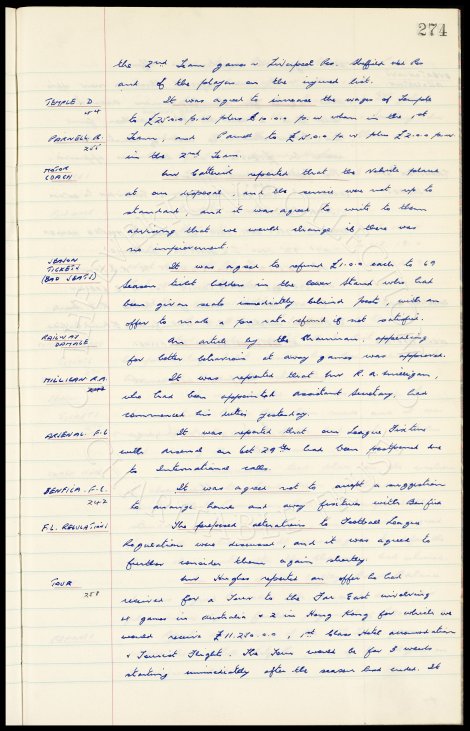 274
the 2nd Team games v Liverpool Res. Sheffield Wed Res
and of the players on the injured list.
TEMPLE. D. It was agreed to increase the wages of Temple
to p.w plus £10.0.0 p.w when in the 1st
PARNELL R. Team, and Parnell to p.w plus £2.0.0 p.w
255 in the 2nd Team.
MOTOR COACH Mr Catterick reported that the vehicle placed
at our disposal, and the service was not up to
standard, and it was agreed to write to them
advising that we would change if there was
no improvement.
SEASON TICKETS (BAD SEATS) It was agreed to refund £1.0.0 each to 69
Season ticket holders in the lower Stand who had
been given seats immediately behind posts, with an
offer to make a pro rata refund if not satisfied.
RAILWAY DAMAGE An article by the Chairman, appealing
for better behaviour at away games was approved.
MILLIGAN R.A. It was reported that Mr R. A. Milligan,
who had been appointed Assistant Secretary, had
commenced his duties yesterday.
ARSENAL. F.C It was reported that our League Fixture
with Arsenal on Oct 29th had been postponed due
to International calls.
BENFICA. F.C. It was agreed not to accept a suggestion
242 to arrange home and away fixtures with Benfica
F.L. REGULATIONS The proposed alterations to Football League
Regulations were discussed, and it was agreed to
further consider them again shortly.
TOUR Mr Hughes reported an offer he had
258 received for a Tour to the Far East involving
games in Australia & 2 in Hong Kong for which we
would receive £11,250.0.0, 1st Class Hotel accomodation
& Tourist Flight. The Tour would be for 5 weeks
starting immediately after the season had ended. It